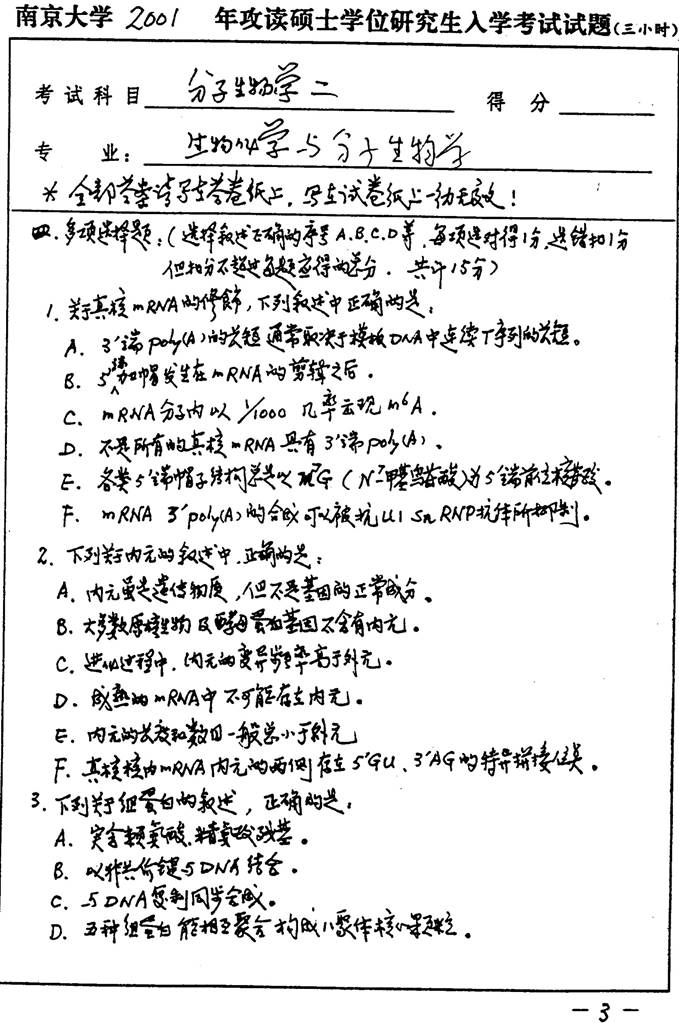 南京大学 2001 年攻读硕士学位研究生入学考试试题(三小时)
考试科目 分子生物学二 得分
专业: 生物化学与分子生物学
* 全部答案请写在答卷纸上,写在试卷纸上一幼无效!
四.多项选择题:(选择叙述正确的序号A.B.C.D等,每项选对得1分,选错扣1分
但扣分不超过每题应得的总分. 共计15分)
1.关于真核mRNA的修饰,下列叙述中正确的是:
A. 3'端poly(A)的长短通常取决于模板DNA中连续T序列的长短。
B. 5'端加帽发生在mRNA的剪辑之后.
C. mRNA分子内以1/1000几率出现m⁶A.
D. 不是所有的真核mRNA具有3'端poly(A).
E. 各类5'端帽子结构总是以m⁷G(N⁷-甲基鸟苷酸)为5'端前立核苷酸。
F. mRNA 3'poly(A)的合成可以被抗U1 SnRNP抗体所抑制。
2.下列关于内元的叙述中.正确的是:
A. 内元虽是遗传物质,但不是基因的正常成分。
B. 大多数原核生物及酵母蛋白基因不含有内元。
C. 进化过程中.内元的变异频率高于外元。
D. 成熟的mRNA中不可能存在内元。
E. 内元的长度和数目一般总小于外元
F. 真核核内mRNA内元的两侧存在5'GU、3'AG的特异拼接位点。
3.下列关于组蛋白的叙述,正确的是:
A. 富含赖氨酸.精氨酸残基。
B. 以非共价键与DNA结合。
C. 与DNA复制同步合成。
D. 五种组蛋白能相互聚合构成八聚体核心颗粒。
-3-